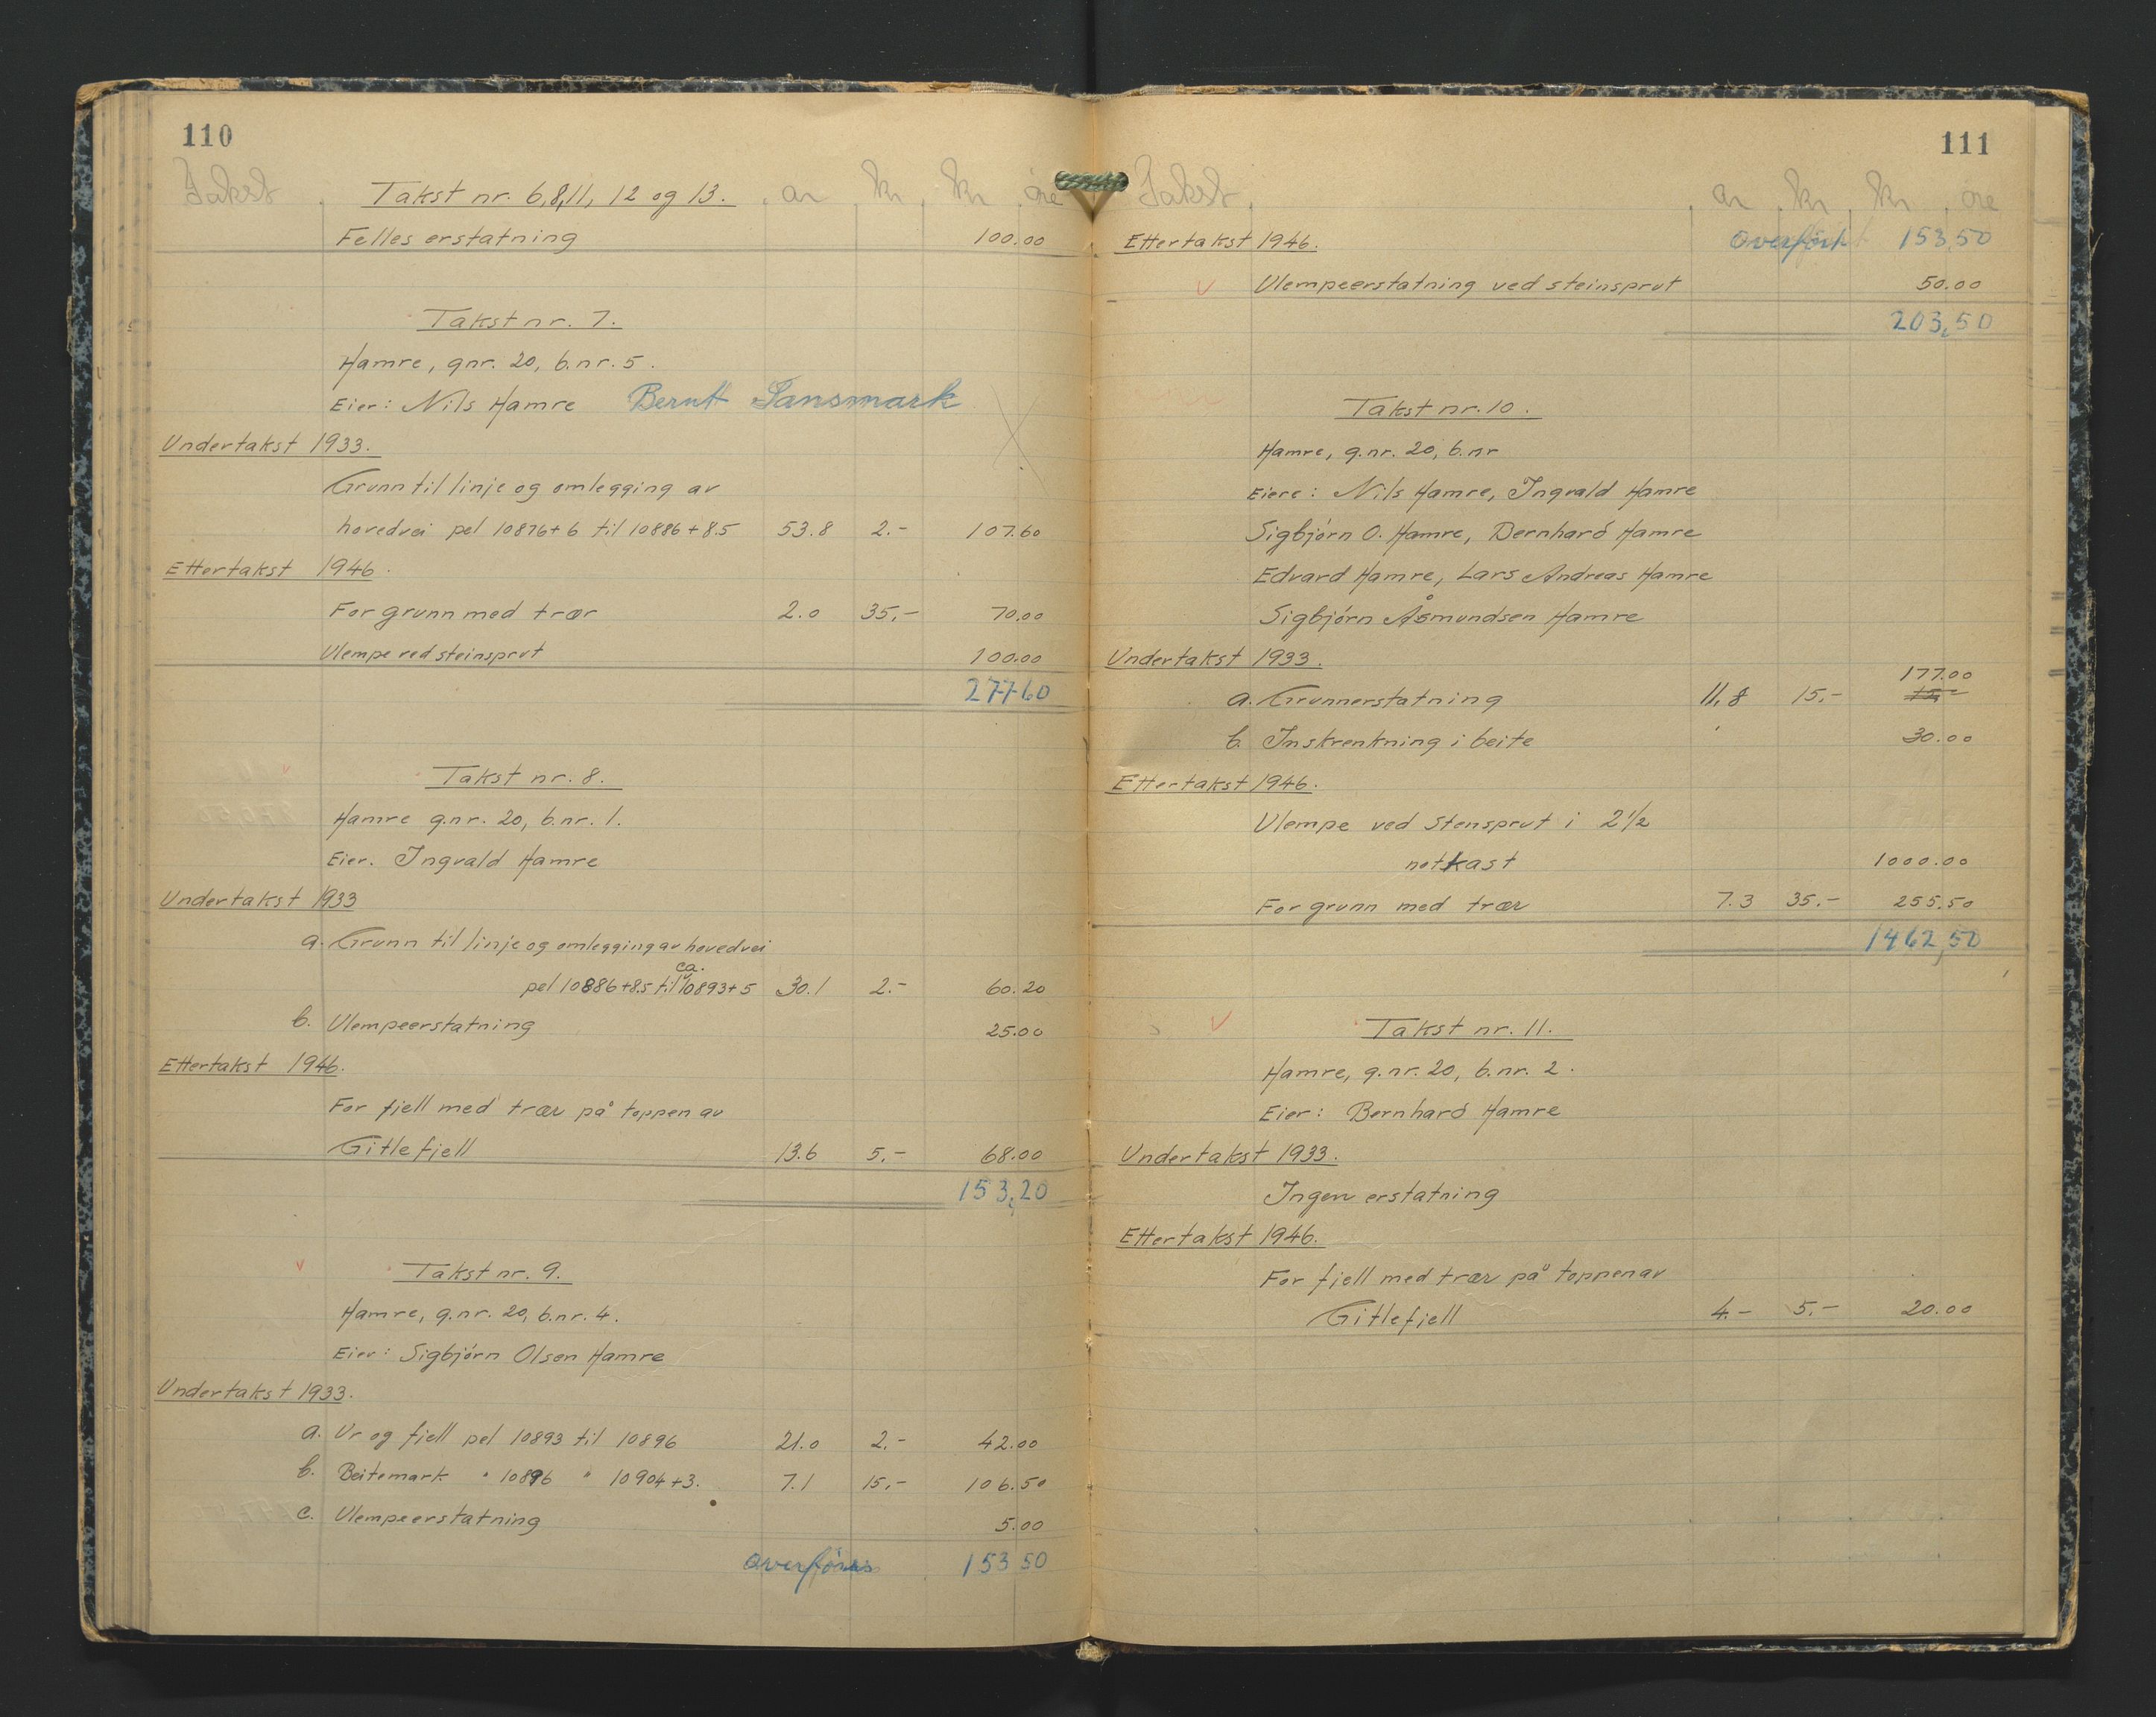 110
Takst ar kr kr øre
Takst nr. 6,8,11, 12 og 13.
Felles erstatning 100.00
Takst nr. 7.
Hamre, gnr. 20, b.nr. 5.
Eier: Nils Hamre Bernt Sansmark
Undertakst 1933.
Grunn til linje og omlegging av
hovedvei pel 10876+6 til 10886+8.5 53.8 2.- 107.60
Ettertakst 1946.
For grunn med trær 2.0 35,- 70.00
Ulempe ved steinsprut 100.00
277 60
Takst nr. 8.
Hamre g.nr. 20, b.nr. 1.
Eier. Ingvald Hamre
Undertakst 1933
a. Grunn til linje og omlegging av hovedvei
pel 10886+8.5 til ca. 10893+5 30.1 2.- 60.20
b. Ulempeerstatning 25.00
Ettertakst 1946.
For fjell med trær på toppen av
Gitlefjell 13.6 5.- 68.00
153,20
Takst nr. 9.
Hamre, g.nr. 20, b.nr. 4.
Eier: Sigbjörn Olsen Hamre
Undertakst 1933.
a. Ur og fjell pel 10893 til 10896 21.0 2.- 42.00
b. Beitemark " 10896 " 10904+3. 7.1 15.- 106.50
c. Ulempeerstatning 5.00
Overføres 153 50
111
Takst ar kr kr øre
Ettertakst 1946. Overført 153,50
Ulempeerstatning ved steinsprut 50.00
203,50
Takst nr. 10.
Hamre, g.nr. 20, b.nr
Eiere: Nils Hamre, Ingvald Hamre
Sigbjörn O. Hamre, Bernhard Hamre
Edvard Hamre, Lars Andreas Hamre
Sigbjörn Åsmundsen Hamre
Undertakst 1933.
177.00
a. Grunnerstatning 11,8 15.-
b. Inskrenkning i beite 30.00
Ettertakst 1946.
Ulempe ved Stensprut i 2 1/2
notkast 1000.00
For grunn med trær 7.3 35.- 255.50
1462,50
Takst nr. 11.
Hamre, g.nr. 20, b.nr. 2.
Eier: Bernhard Hamre
Undertakst 1933.
Ingen erstatning
Ettertakst 1946.
For fjell med trær på toppen av
Gitlefjell 4.- 5.- 20.00